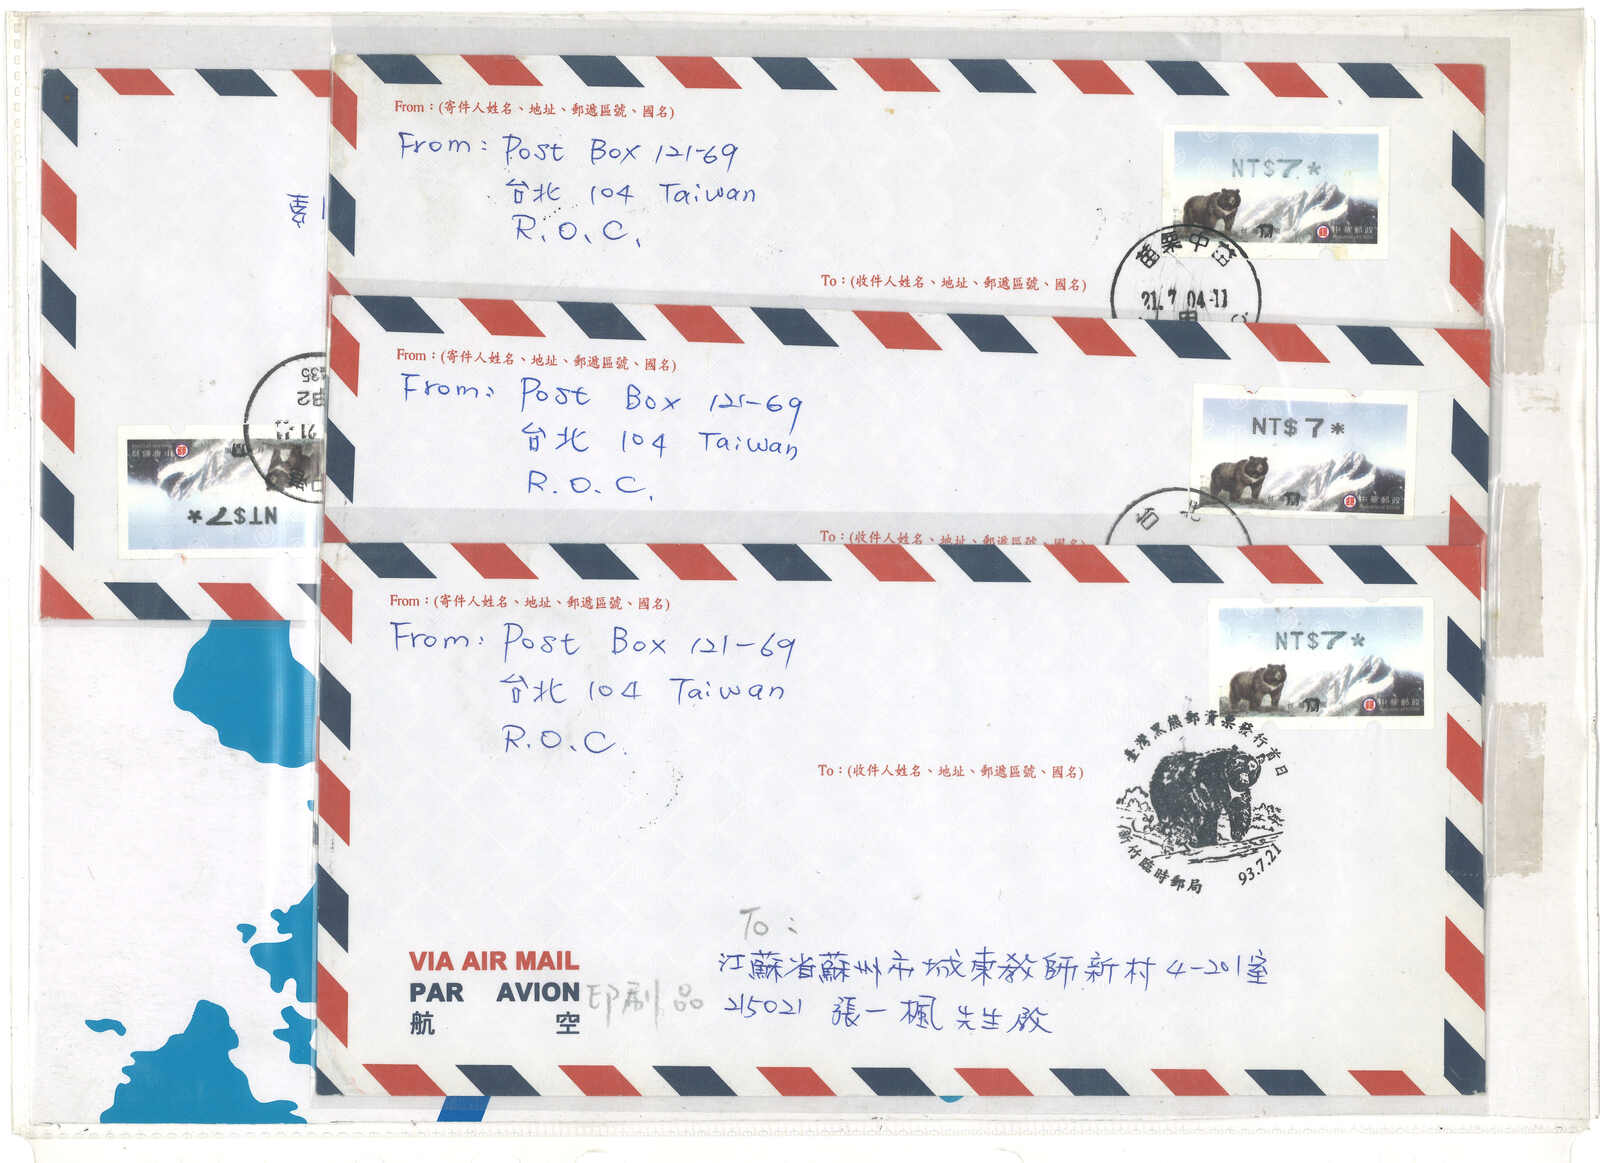 From：(寄件人姓名、地址、郵遞區號、國名)
From: Post Box 121-69
台北 104 Taiwan
R.O.C.
NT$7*
中華郵政
To：(收件人姓名、地址、郵遞區號、國名)
苗栗中苗
21.7.04-11
甲
From：(寄件人姓名、地址、郵遞區號、國名)
From: Post Box 121-69
台北 104 Taiwan
R.O.C.
NT$7*
中華郵政
To：(收件人姓名、地址、郵遞區號、國名)
台北
NT$7*
中華郵政
From：(寄件人姓名、地址、郵遞區號、國名)
From: Post Box 121-69
台北 104 Taiwan
R.O.C.
NT$7*
中華郵政
To：(收件人姓名、地址、郵遞區號、國名)
臺灣黑熊郵資票發行首日
新竹臨時郵局
93.7.21
To:
江蘇省蘇州市城東教師新村4-201室
215021 張一楓先生啟
VIA AIR MAIL
PAR AVION
航空
印刷品